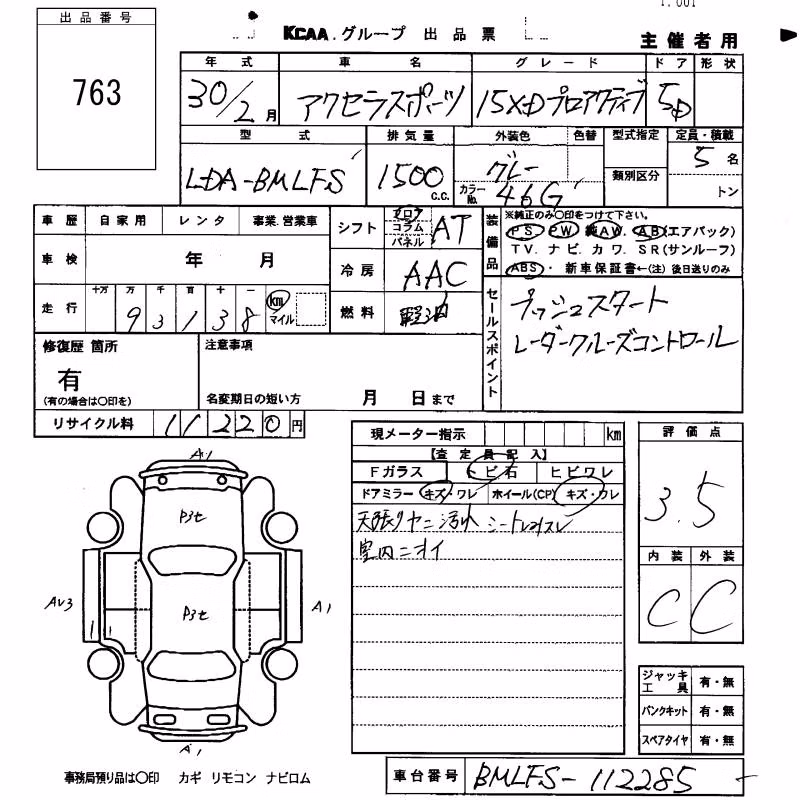 1.001
出品番号
763
KCAA.グループ 出品票
主催者用
年式 車名 グレード ドア 形状
30/2月 アクセラスポーツ 15XDプロアクティブ 5D
型式 排気量 外装色 色替 型式指定 定員・積載
LDA-BMLFS 1500 C.C. グレー カラーNo. 46G 類別区分 5名 トン
車歴 自家用 レンタ 事業.営業車
シフト フロア コラム パネル AT
装備品 ※純正のみ〇印をつけて下さい。
PS PW 純AW. AB(エアバック)
TV.ナビ.カワ.SR(サンルーフ)
ABS・新車保証書←(注)後日送りのみ
車検 年 月
冷房 AAC
走行 十万 万 千 百 十 一
93138 km マイル
燃料 軽油
セールスポイント
プッシュスタート
レーダークルーズコントロール
修復歴 箇所
有
(有の場合は〇印を)
注意事項
名変期日の短い方 月 日まで
リサイクル料 11220円
現メーター指示 km
【査定員記入】
Fガラス トビ石 ヒビワレ
ドアミラー キズ・ワレ ホイール(CP) キズ・ワレ
天張りヤニ汚れ シートスレ
室内ニオイ
評価点
3.5
内装 外装
C C
A1
P3セ
P3セ
AU3
A1
A1
ジャッキ工具 有・無
パンクキット 有・無
スペアタイヤ 有・無
事務局預り品は〇印 カギ リモコン ナビロム
車台番号 BMLFS-112285